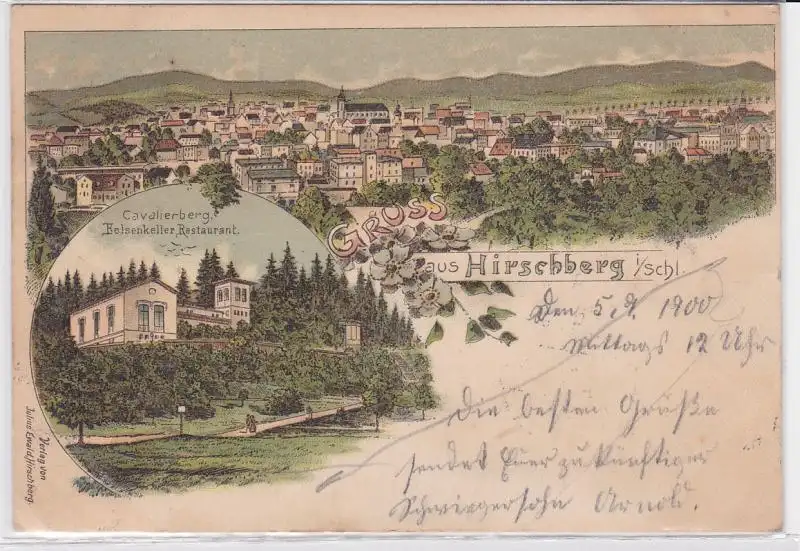 Cavalierberg,
Felsenkeller Restaurant.
GRUSS
aus Hirschberg i/Schl.
Den 5.9. 1900
Mittags 12 Uhr
Die besten Grüße
sendet Euer zukünftiger
Schwiegersohn Arnold.
Verlag von
Julius Ewald, Hirschberg.